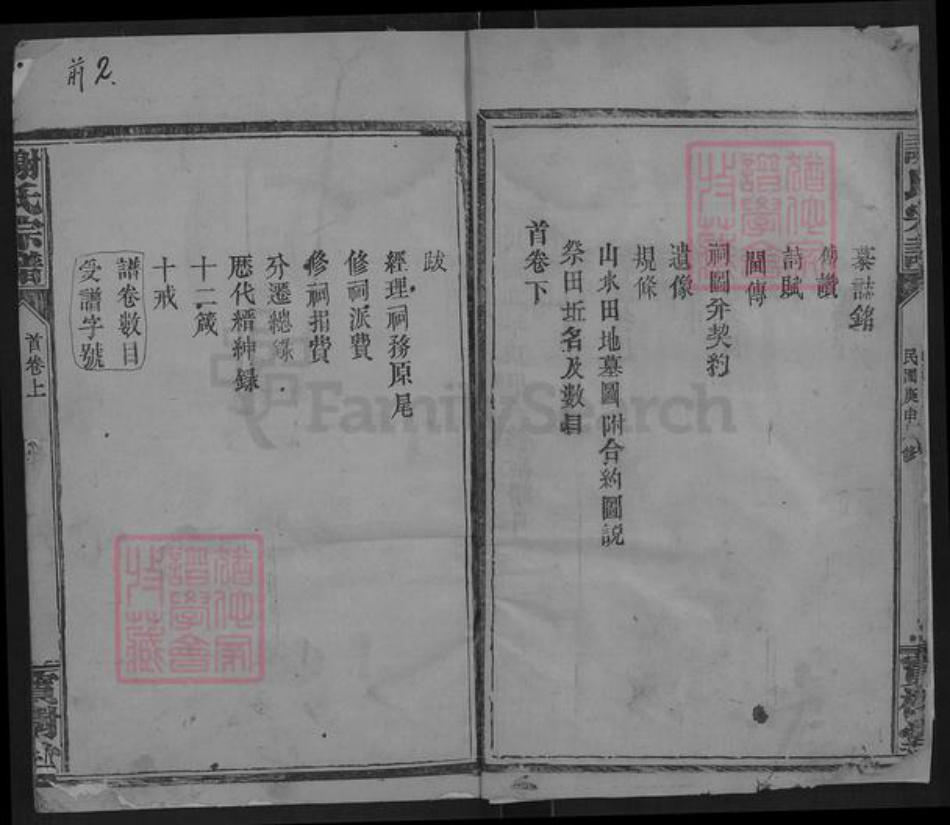 墓誌銘
傳讚
詩賦
閫傳
祠圖并契約
遺像
規條
山水田地墓圖附合約圖説
祭田坵名及數目
首卷下
跋
經理祠務原尾
修祠派費
修祠捐費
分遷總錄
歷代縉紳録
十二箴
十戒
譜卷數目
受譜字號
謝氏宗譜
首卷上
寶樹堂
民國庚申
修
前2.
FamilySearch